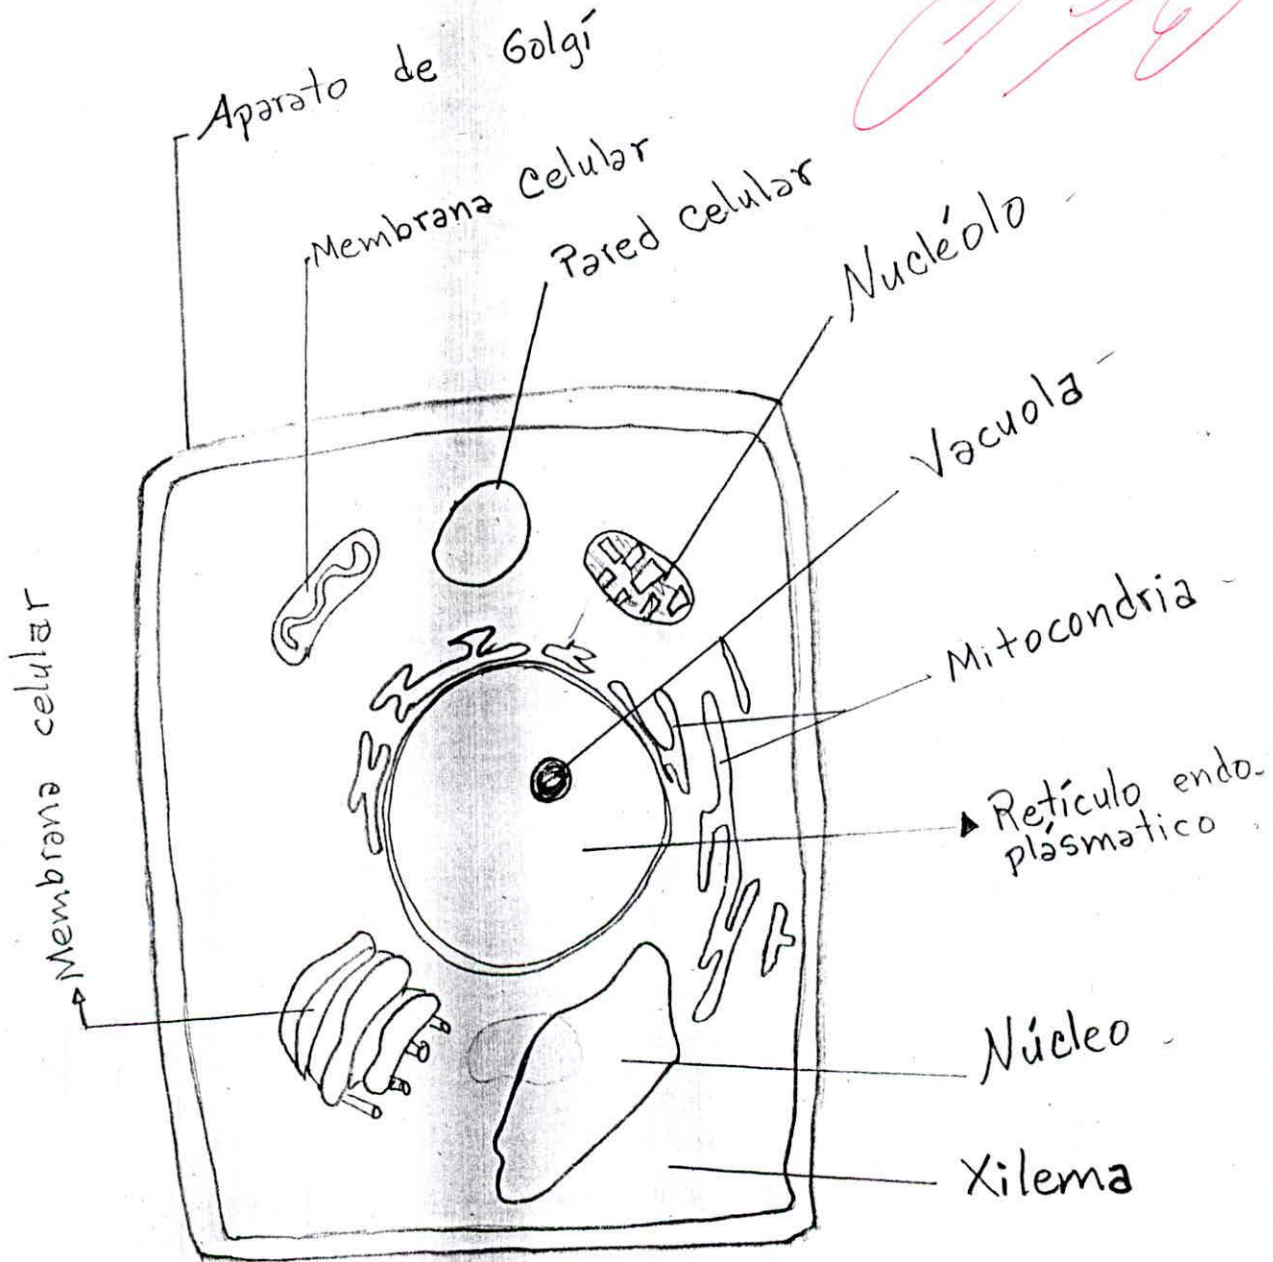 Aparato de Golgí
Membrana Celular
Pared Celular
Nucléolo
Vacuola
Mitocondria
Retículo endo-
plásmatico
Núcleo
Xilema
Membrana celular